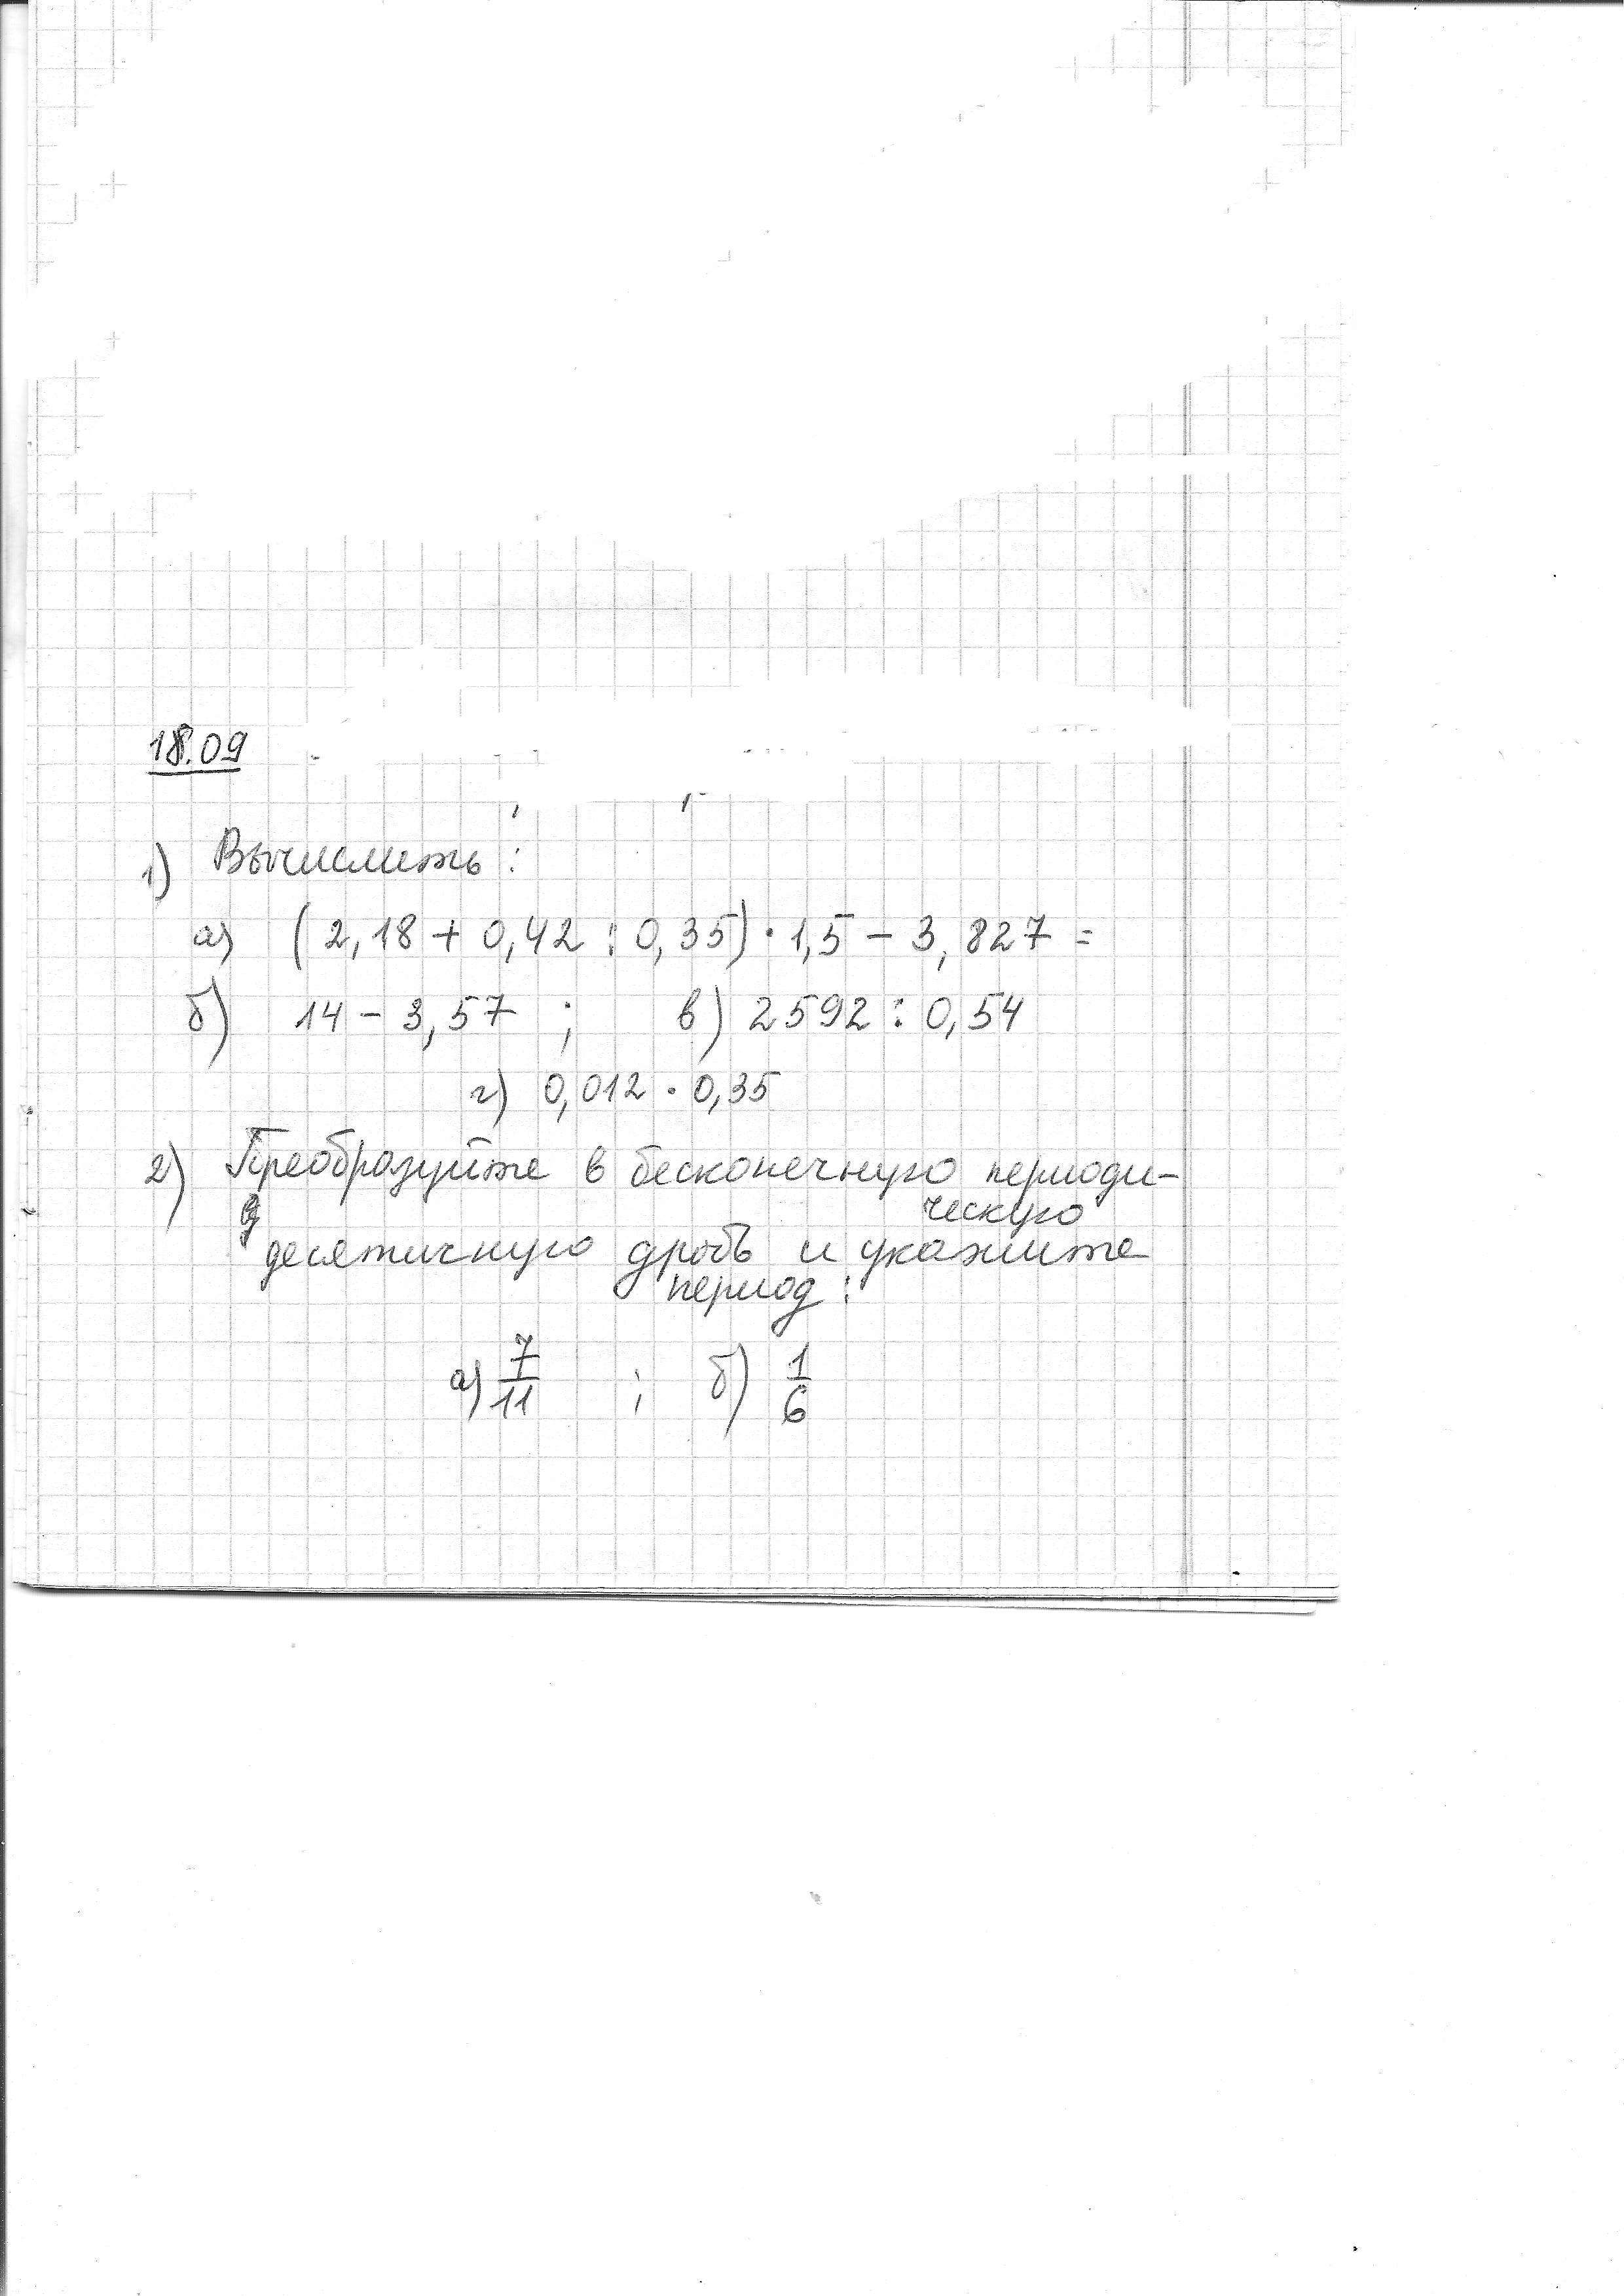 18.09
1) Вычислить:
а) (2,18 + 0,42 : 0,35) · 1,5 - 3,827 =
б) 14 - 3,57 ; в) 2592 : 0,54
г) 0,012 · 0,35
2) Преобразуйте в бесконечную периоди-
ческую
десятичную дробь и укажите
период:
а) 7/11 ; б) 1/6